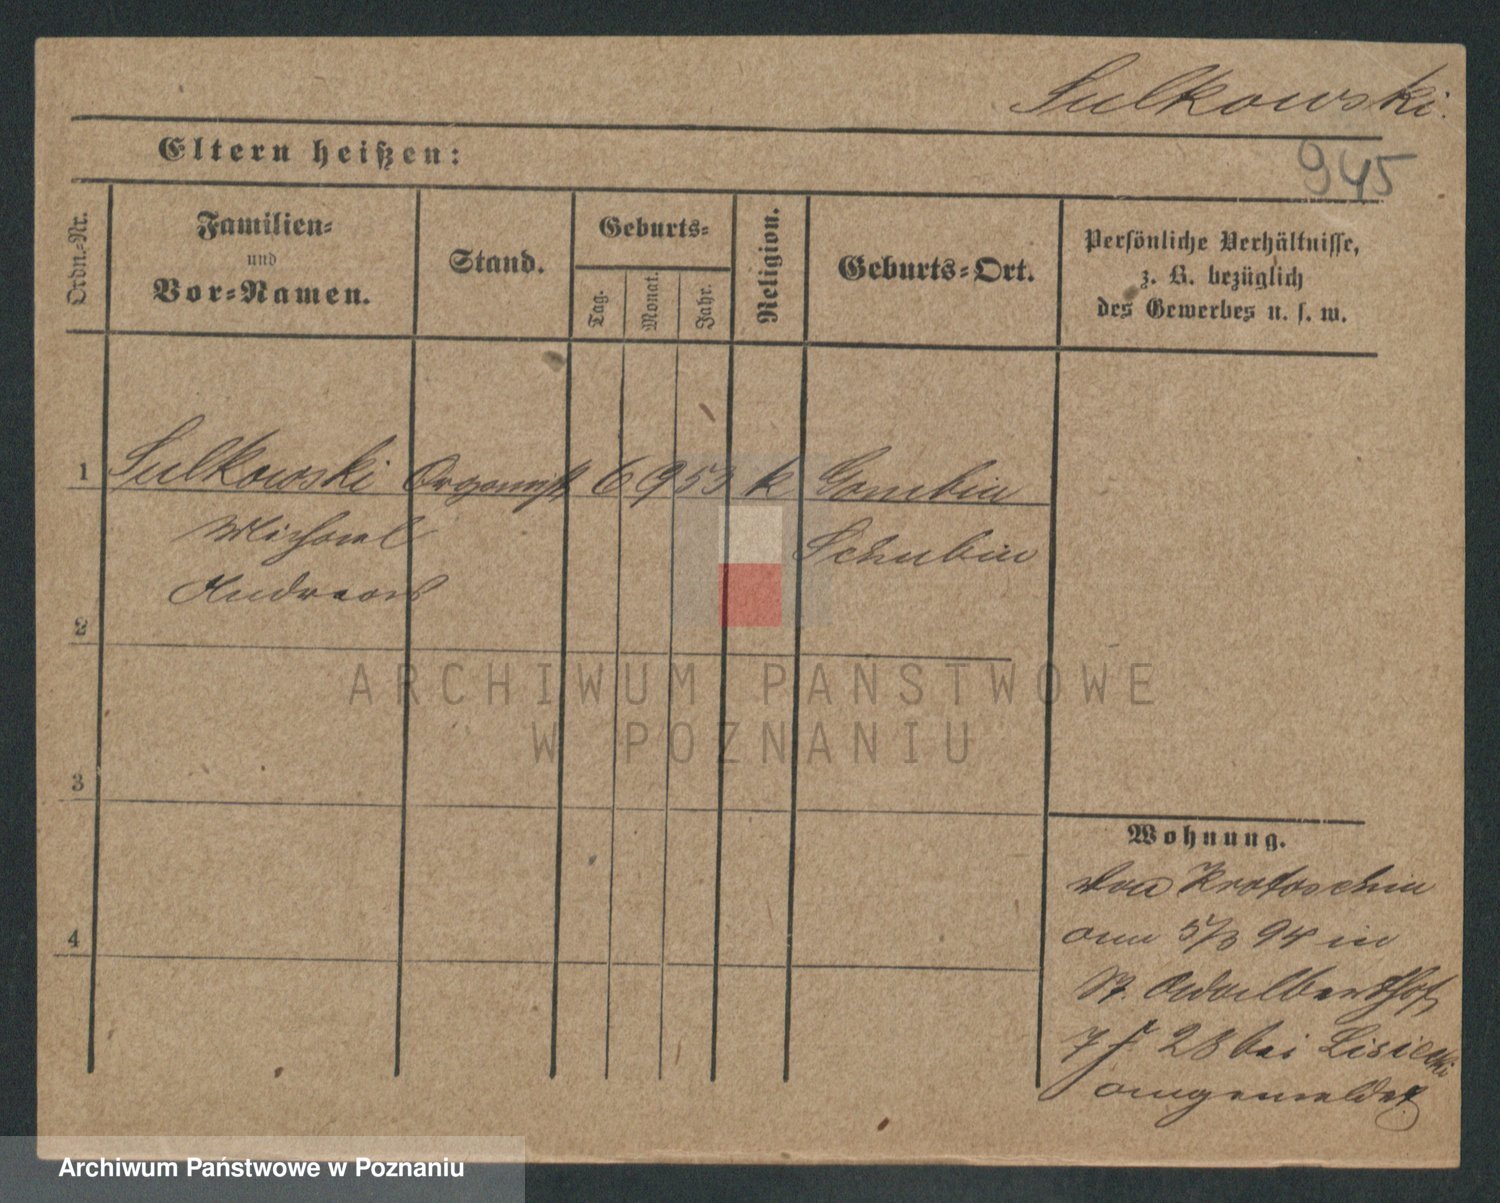 Sulkowski.
945
Eltern heißen:
Ordn.-Nr.
Familien-
und
Vor-Namen.
Stand.
Geburts-
Tag.
Monat.
Jahr.
Religion.
Geburts-Ort.
Persönliche Verhältnisse,
z. B. bezüglich
des Gewerbes u. s. w.
1 Sulkowski Organist 6 9 53 k Gombin
Michael Schubin
Andreas
2
3
4
Wohnung.
Von Krotoschin
am 5/3 94 in
St. Adalberthof
28 bei Lisiecki
angemeldet
ARCHIWUM PAŃSTWOWE
W POZNANIU
Archiwum Państwowe w Poznaniu